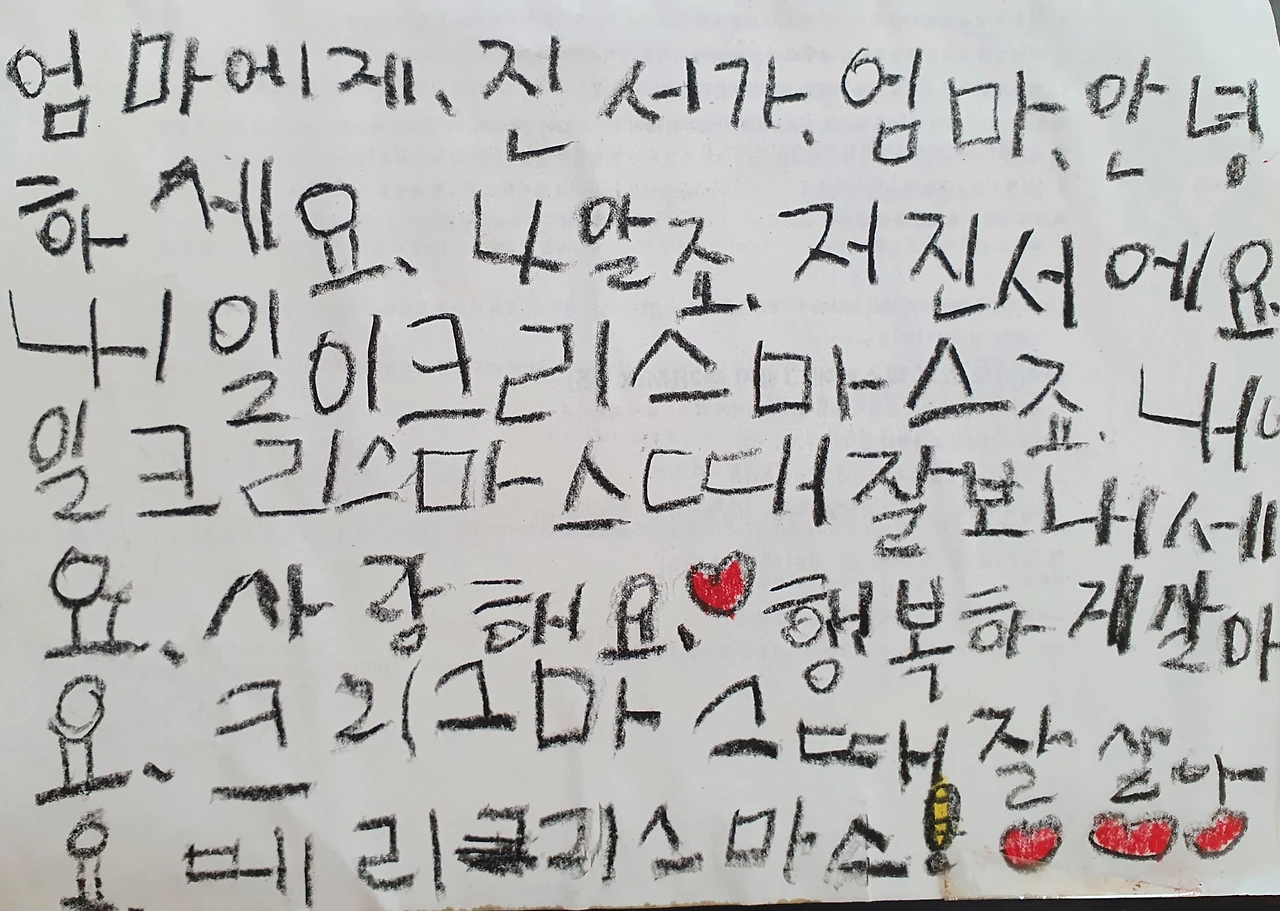 엄마에게, 진서가, 엄마, 안녕
하세요, 나알죠, 저진서에요,
내일이크리스마스죠, 내
일크리스마스때잘보내세
요, 사랑해요, 행복하게살아
요, 크리스마스때 잘살아
요 메리크리스마스